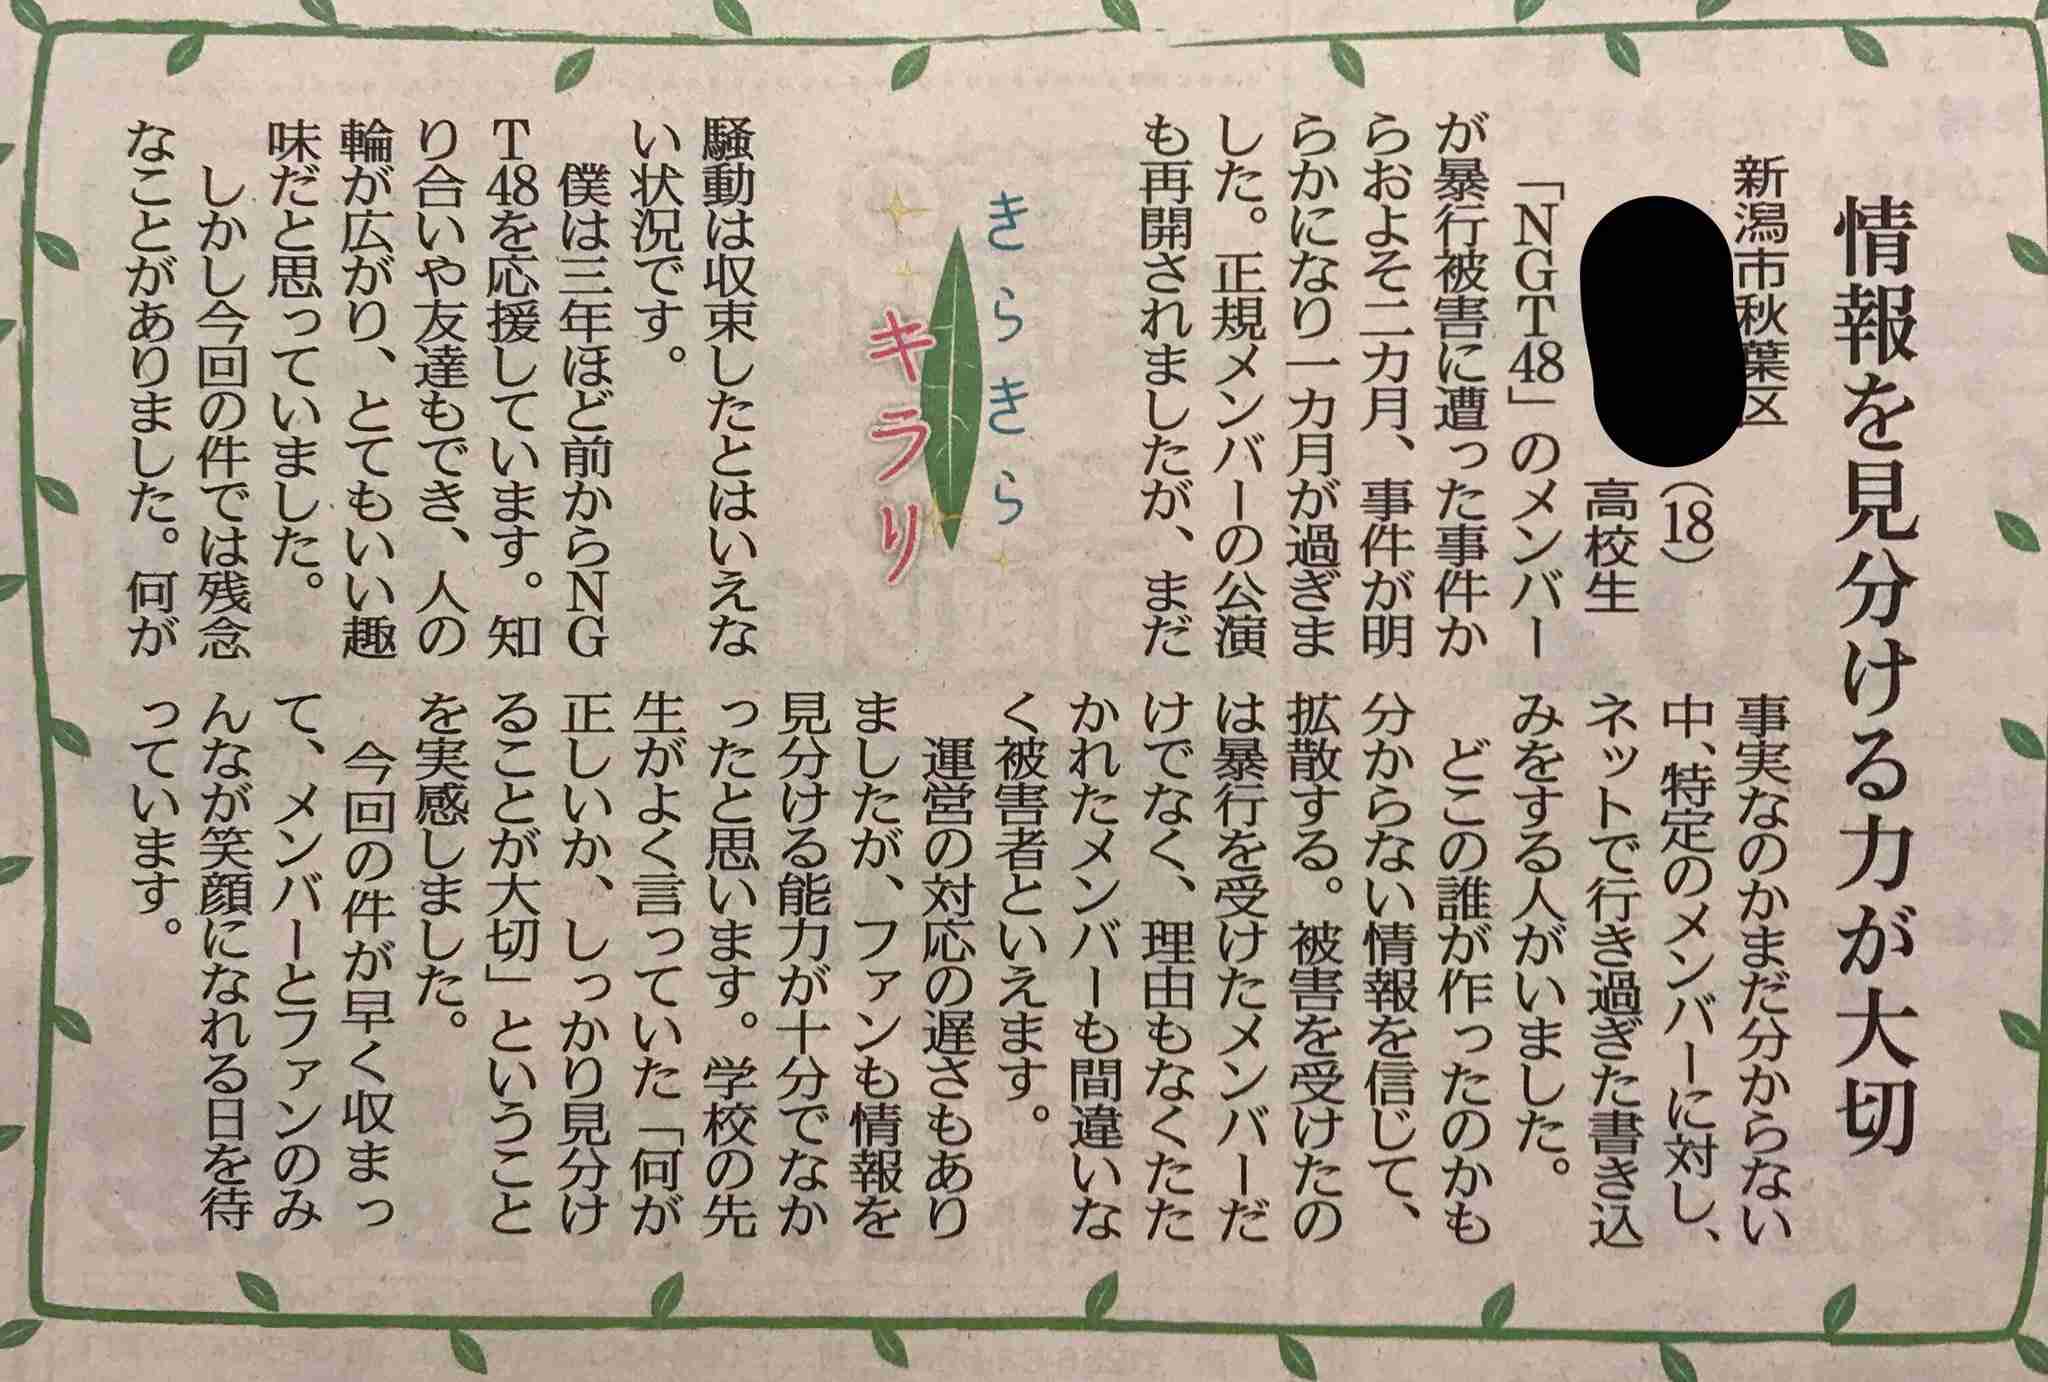 情報を見分ける力が大切
新潟市秋葉区
(18)
高校生
「NGT48」のメンバー
が暴行被害に遭った事件か
らおよそ二カ月、事件が明
らかになり一カ月が過ぎま
した。正規メンバーの公演
も再開されましたが、まだ
きらきら
キラリ
騒動は収束したとはいえな
い状況です。
僕は三年ほど前からNG
T48を応援しています。知
り合いや友達もでき、人の
輪が広がり、とてもいい趣
味だと思っていました。
しかし今回の件では残念
なことがありました。何が
事実なのかまだ分からない
中、特定のメンバーに対し、
ネットで行き過ぎた書き込
みをする人がいました。
どこの誰が作ったのかも
分からない情報を信じて、
拡散する。被害を受けたの
は暴行を受けたメンバーだ
けでなく、理由もなくたた
かれたメンバーも間違いな
く被害者といえます。
運営の対応の遅さもあり
ましたが、ファンも情報を
見分ける能力が十分でなか
ったと思います。学校の先
生がよく言っていた「何が
正しいか、しっかり見分け
ることが大切」ということ
を実感しました。
今回の件が早く収まっ
て、メンバーとファンのみ
んなが笑顔になれる日を待
っています。